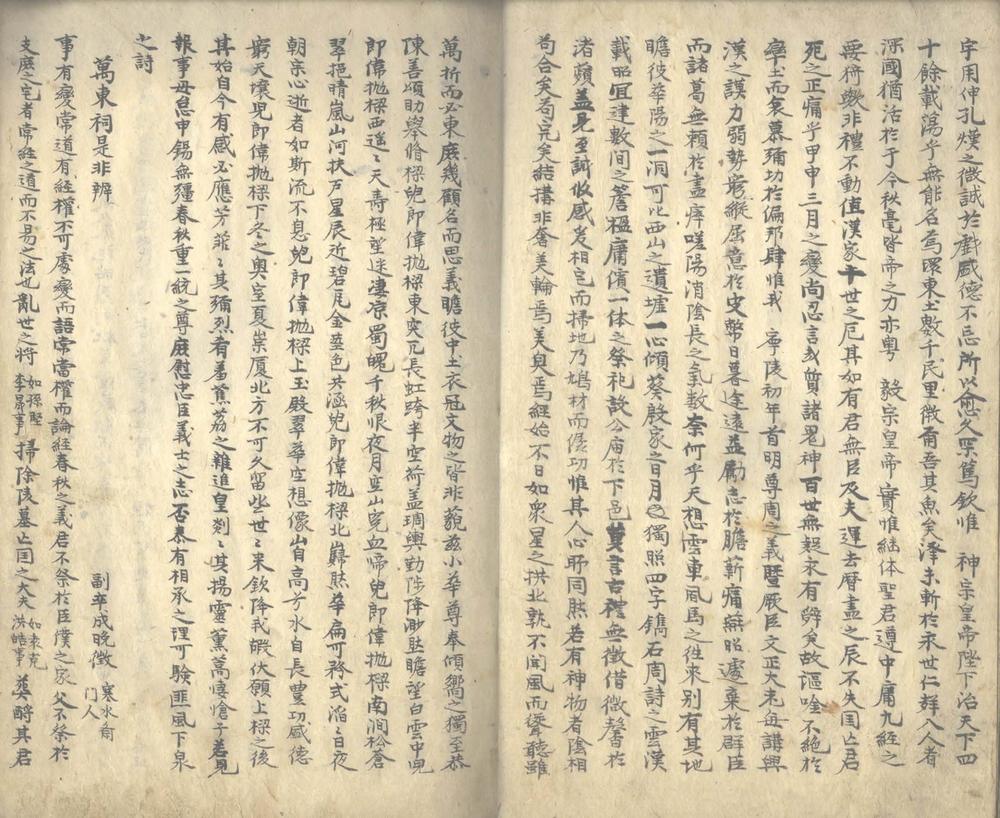 宇用伸孔爟之微誠於戱盛德不忘所以愈久深篤欽惟 神宗皇帝陛下治天下四
十餘載蕩乎無能名焉環東土數千民里微爾吾其魚矣澤未斬於永世仁群入人者
深國猶活於于今秋毫皆帝之力亦粤 毅宗皇帝實惟継体聖君遵中庸九経之
要符數非禮不動值漢家十世之厄其如有君無臣及夫運去曆盡之辰不失国亡君
死之正痛乎甲申三月之變尚忍言哉質諸鬼神百世無疑永有辞矣故謳唫不絶於
率土而哀慕彌功於偏邦肆惟我 寧陵初年首明尊周之義曁厥臣文正大老每講興
漢之謨力弱勢窮縱屈意於史幣日暮途遠益勵志於膽薪痛無昭遽棄於群臣
而諸葛無賴於盡瘁嗟陽消陰長之氣數奈何乎天想雲車風馬之徃來別有其地
瞻彼華陽之一洞可比西山之遺墟一心傾葵殷家之日月之獨照四字鐫石周詩之雲漢
載昭冝建數間之簷楹庸儐一体之祭祀設公廟於下邑莫言古禮無徵借微馨於
渚蘋盖見至誠攸感爰相宅而掃地乃鳩材而僝功惟其人心所同然若有神物者陰相
苟合矣苟完矣結搆非奢美輪焉美奐焉経始不日如衆星之拱北孰不聞風而聳聽雖
萬折而必東庶幾顧名而思義瞻彼中土衣冠文物之皆非藐玆小華尊奉傾嚮之獨至恭
陳善頌助擧脩樑皃即偉抛樑東突兀長虹跨半空荷盖琱輿勤陟降渺然瞻望白雲中皃
即偉抛樑西遥〻天壽極望迷凄凉蜀魄千秋恨夜月空山寃血啼皃即偉抛樑南澗松含
翠挹晴嵐山河扶戶星辰近碧瓦金莖色共涵皃即偉抛樑北巋然華扁可矜式滔〻日夜
朝宗心逝者如斯流不息皃即偉抛樑上玉殿翠華空想像山自高兮水自長豊功盛德
窮天壤皃即偉抛樑下冬之奧室夏崇厦北方不可久留些世之来欽降我嘏伏願上樑之後
其始自今有感必應芳菲〻其彌烈肴羞蕉荔之雜進皇剡〻其揚靈薫蒿悽愴乎若見
報事毋怠申錫無疆春秋重一統之尊庶慰忠臣義士之志否泰有相承之理可驗匪風下泉
之詩
萬東祠是非辨
副率成晩徵 寒水齋門人
事有變常道有経權不可處變而語常當權而論経春秋之義君不祭於臣僕之家父不祭於
支庶之宅者常経之道而不易之法也亂世之将 如孫堅李晟事 掃除陵墓亡国之大夫 如袁克洪皓事 奠酹其君